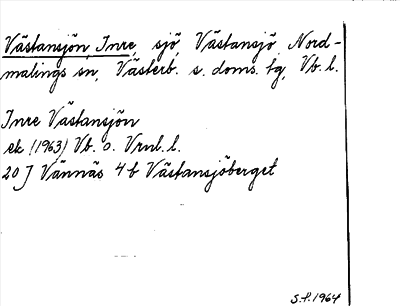 Västansjön, Inre, sjö, Västansjö, Nord-
malings sn, Västerb. s. doms. tg, Vb. l.
Inre Västansjön
ek (1963) Vb. o. Vrml. l.
20 J Vännäs 4 b Västansjöberget
S.f. 1964